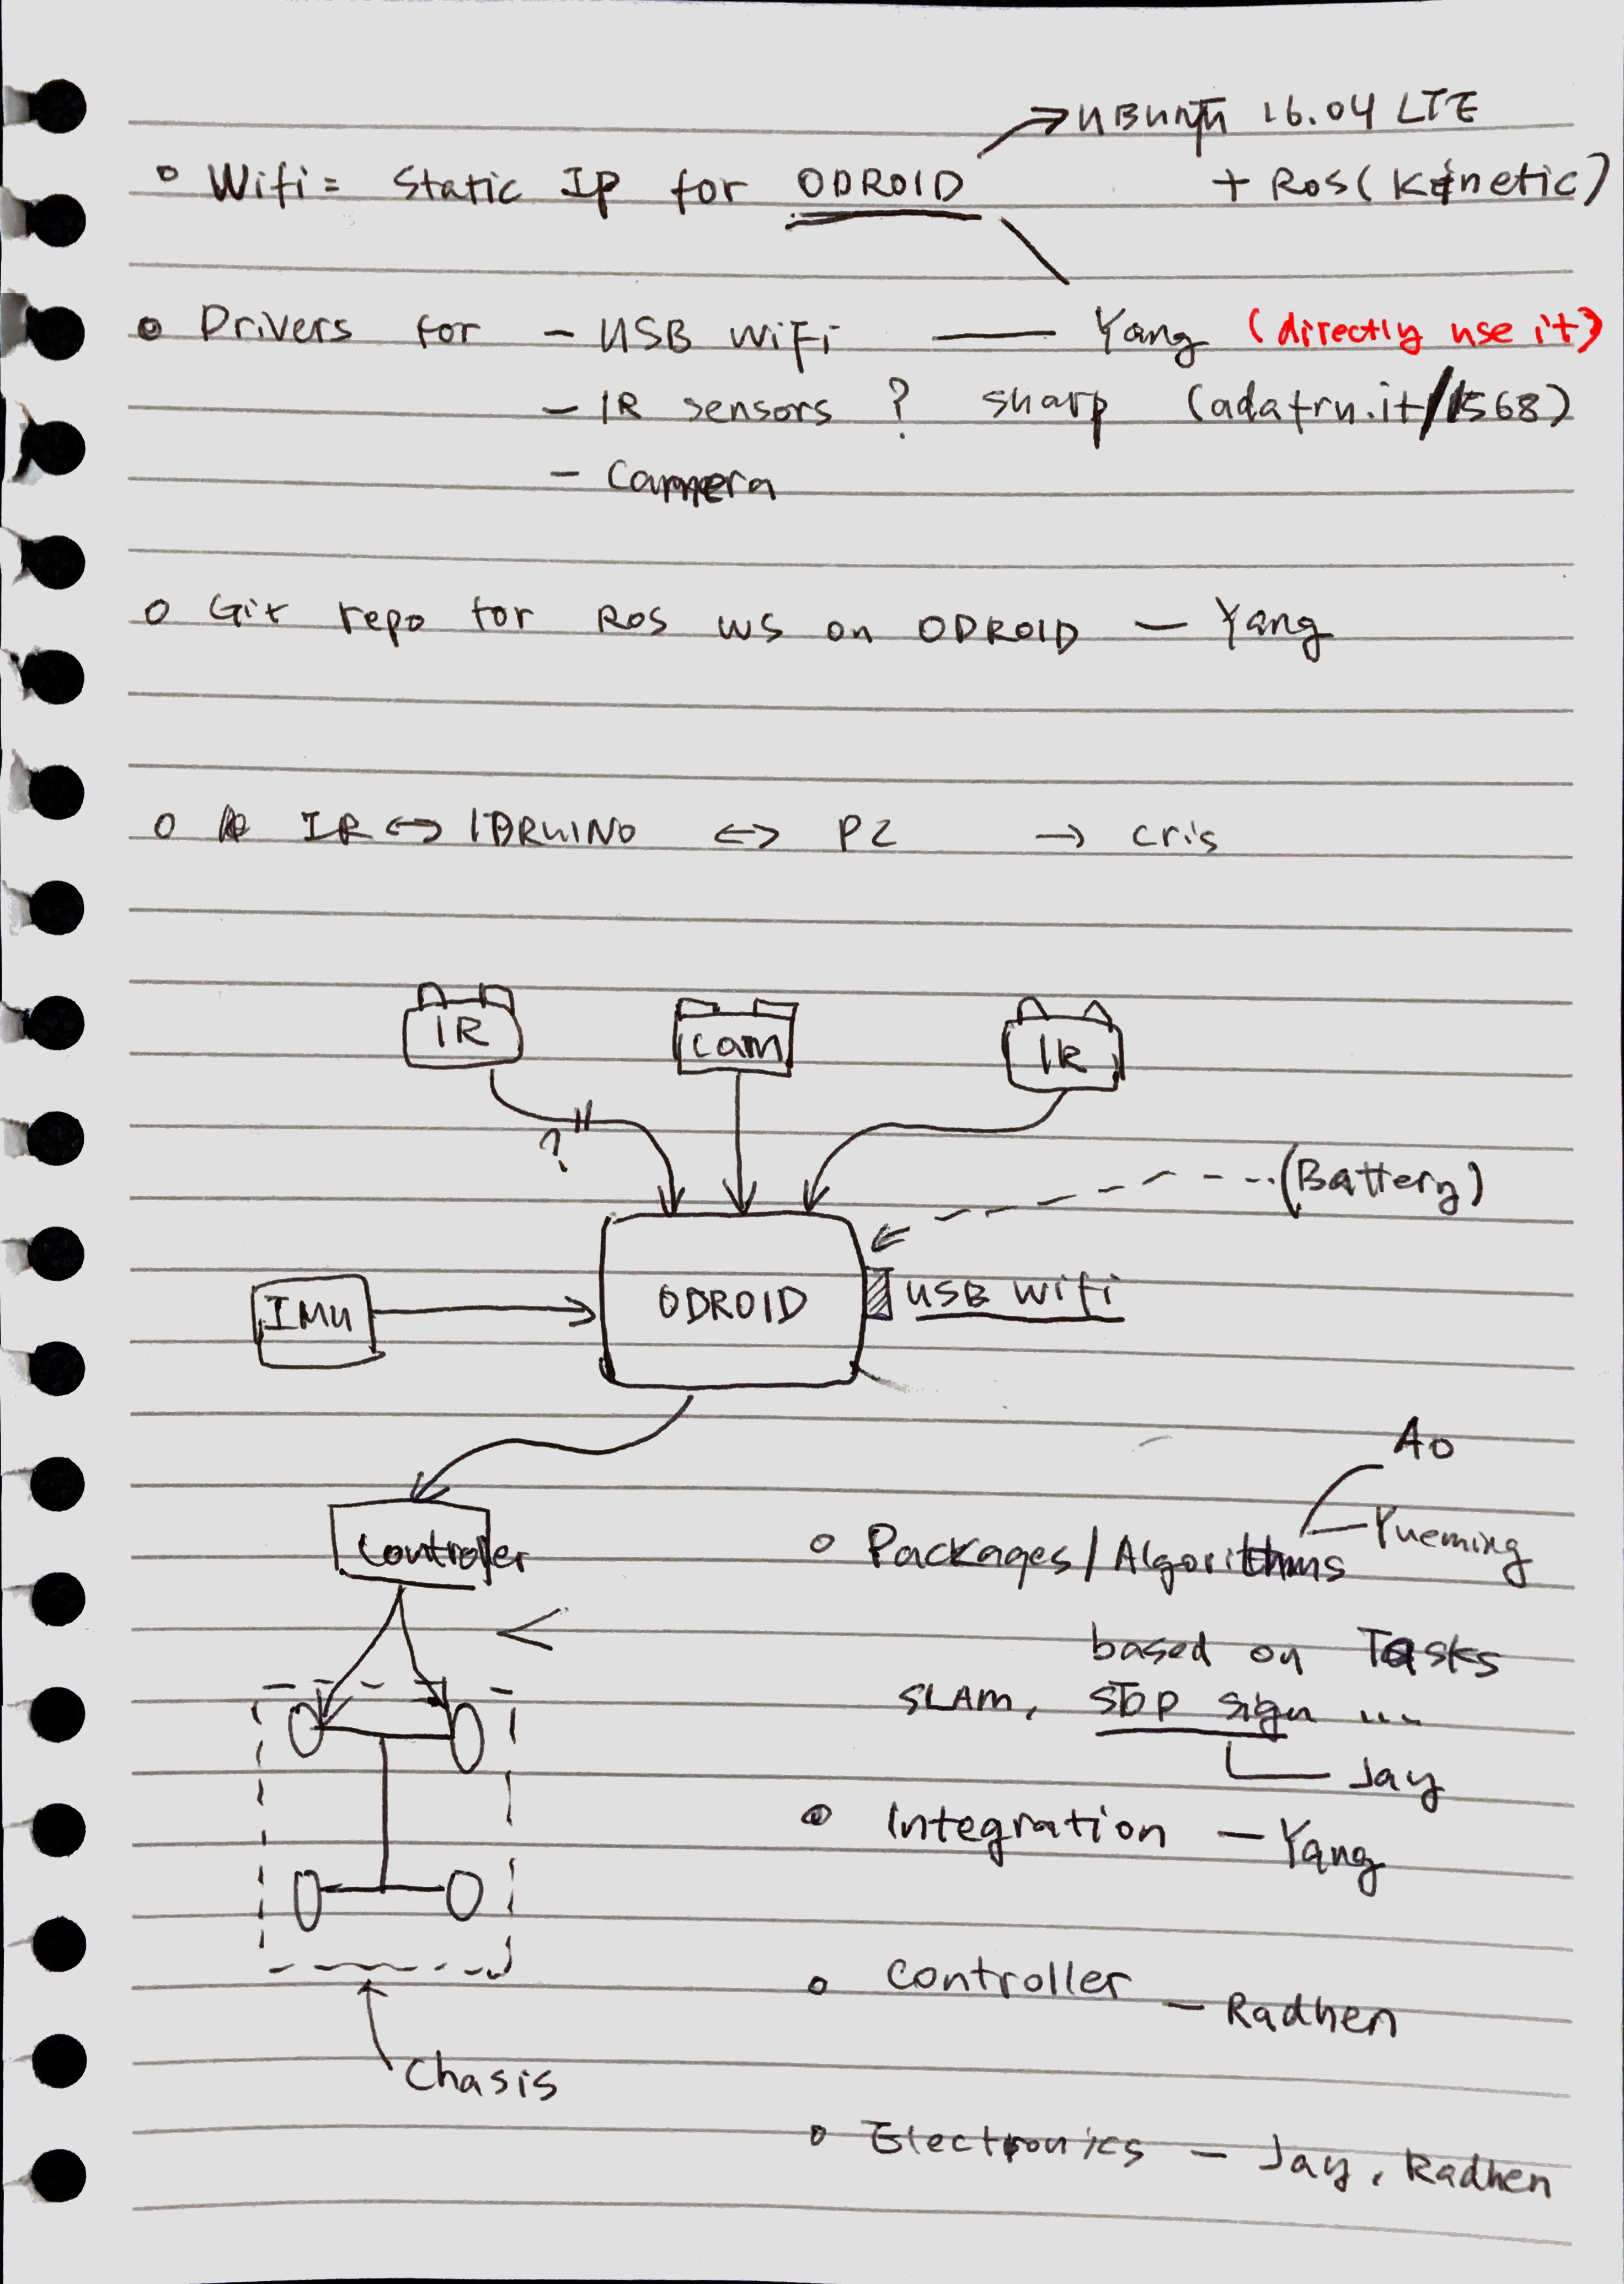 → UBUNTU 16.04 LTE
o Wifi= Static Ip for ODROID + Ros (Kinetic)
o Drivers for - USB WiFi — Yang (directly use it)
- IR sensors ? sharp (adafru.it/1568)
- Camera
o Git repo for Ros WS on ODROID — Yang
o IR <-> ↔ PC → cris
IR cam IR
?
(Battery)
IMU ODROID USB Wifi
Ao
Controller o Packages/Algorithms Yueming
based on Tasks
SLAM, Stop sign ...
Jay
o Integration — Yang
o Controller — Radhen
Chasis
o Electronics — Jay, Radhen